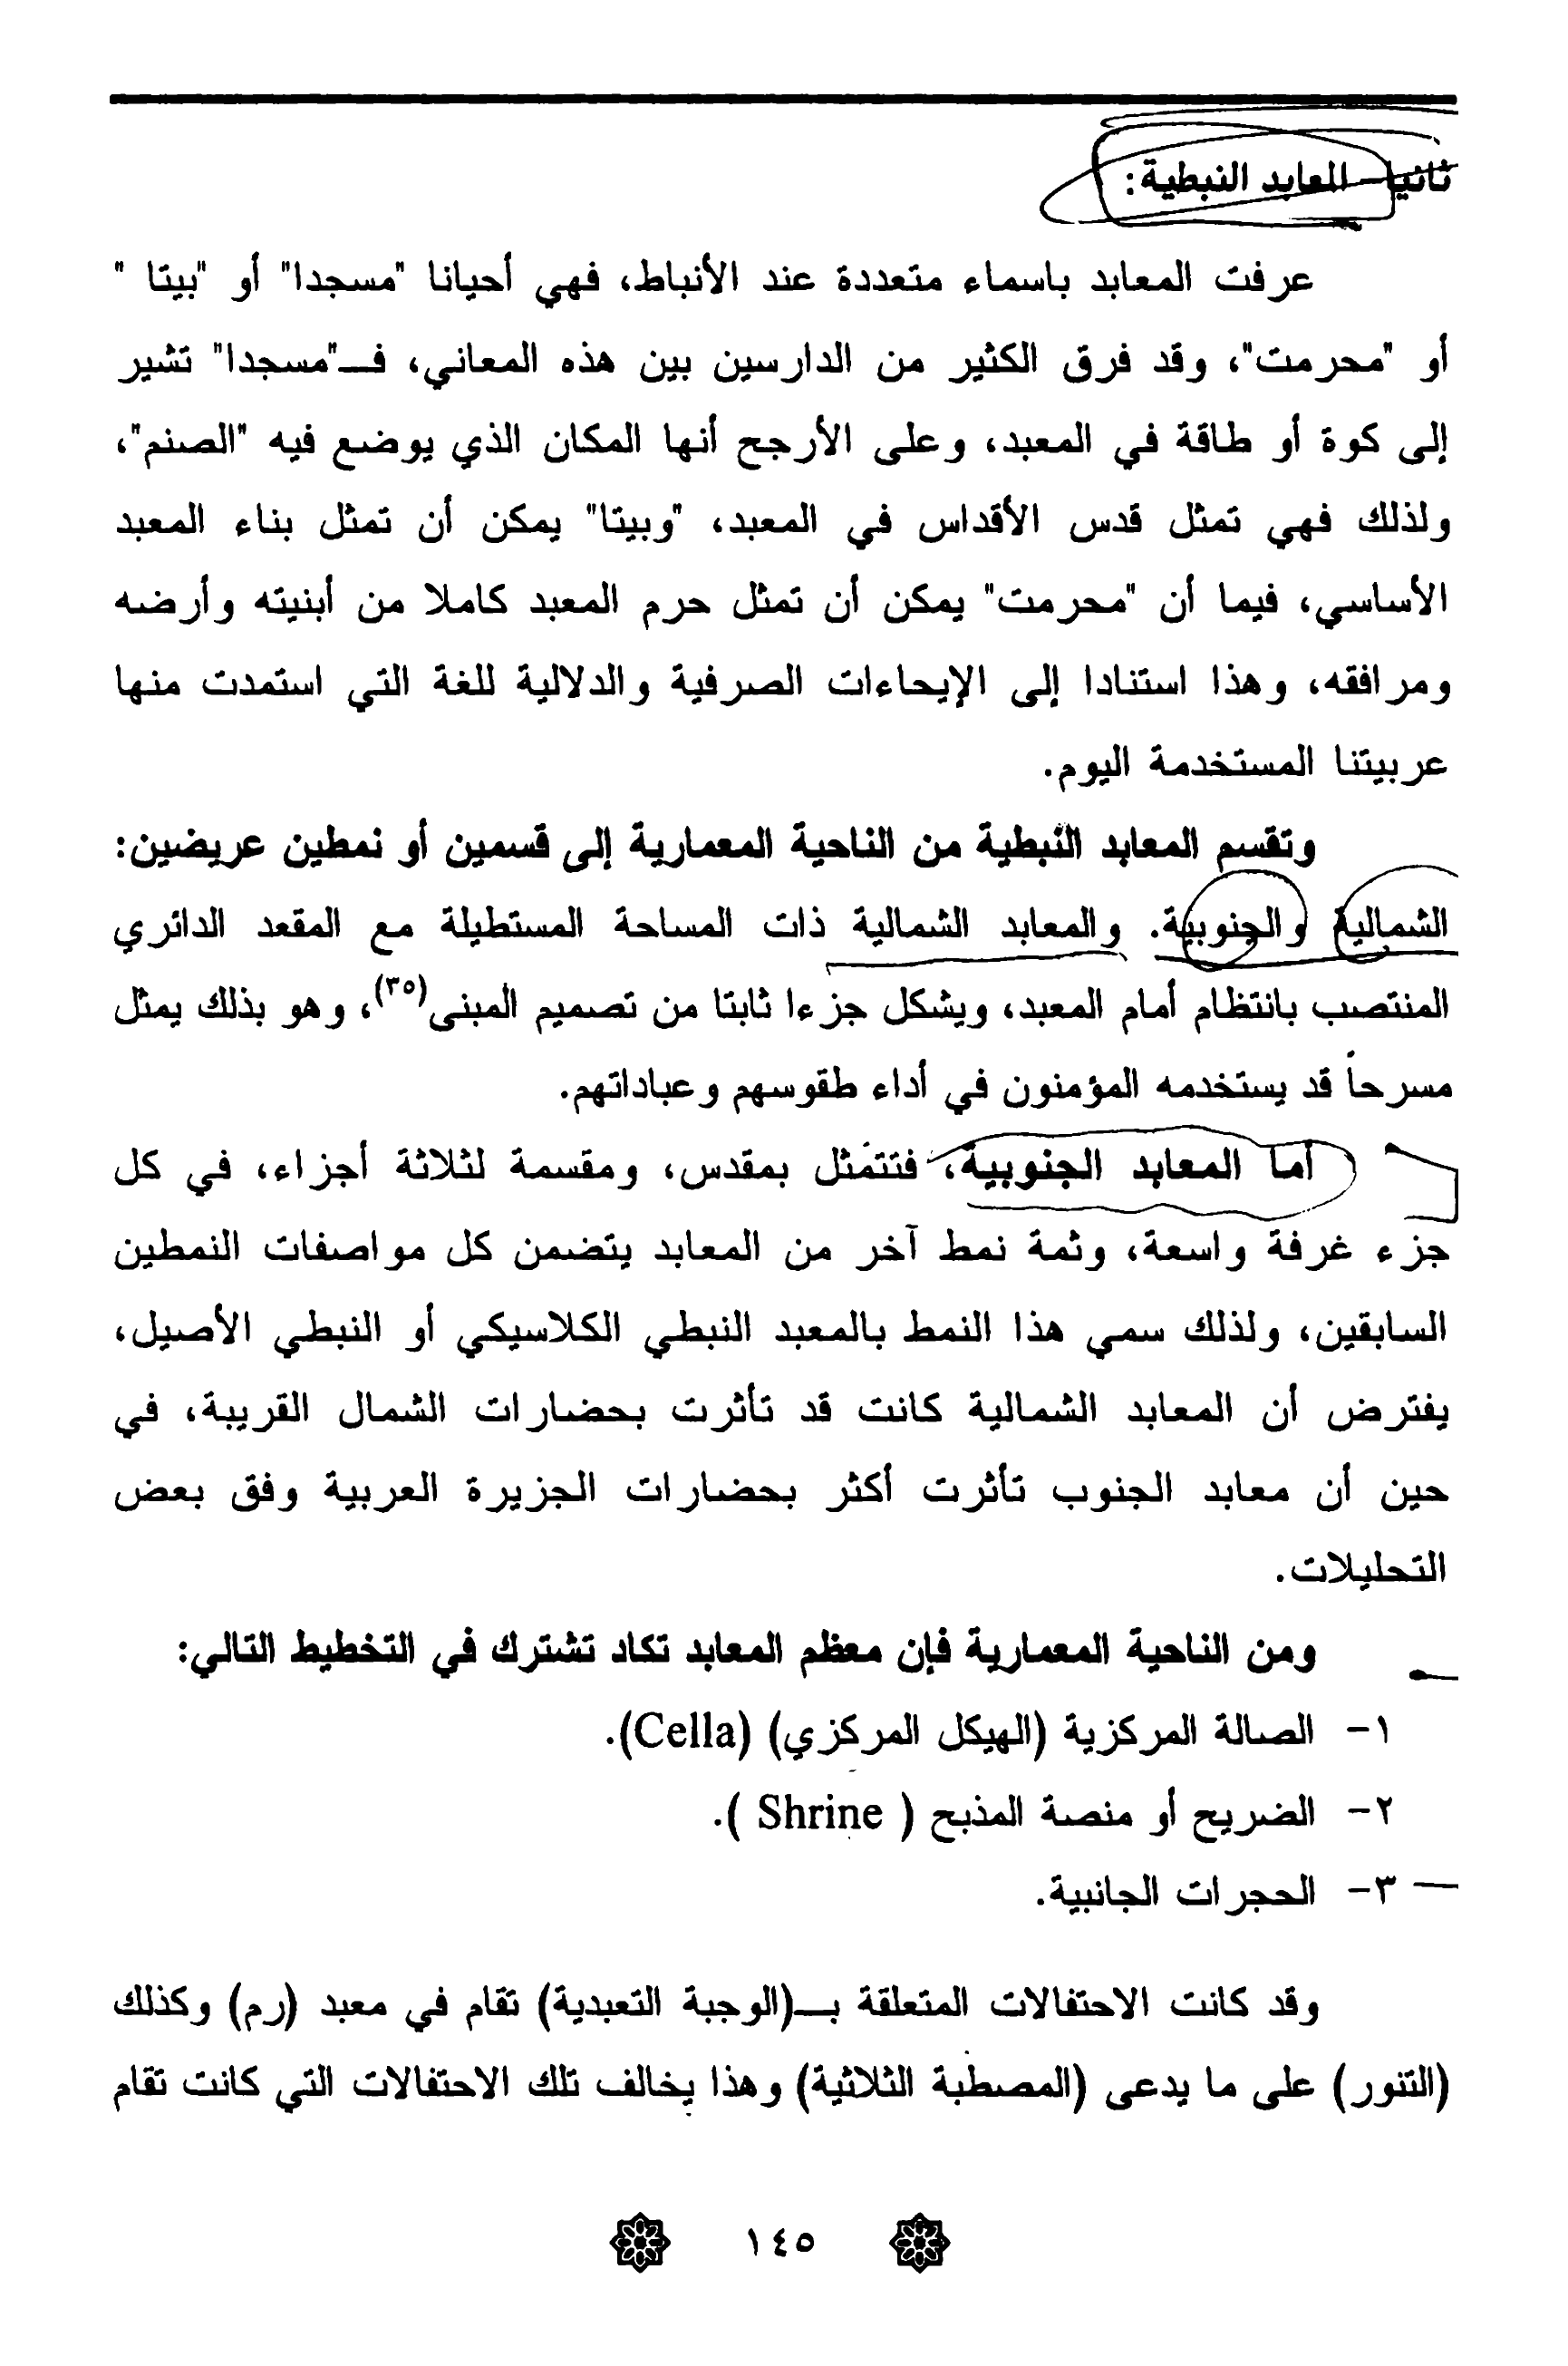 ثانيا- المعابد النبطية:
عرفت المعابد باسماء متعددة عند الأنباط، فهي أحيانا "مسجدا" أو "بيتا "
أو "محرمت"، وقد فرق الكثير من الدارسين بين هذه المعاني، فــ"مسجدا" تشير
إلى كوة أو طاقة في المعبد، وعلى الأرجح أنها المكان الذي يوضع فيه "الصنم"،
ولذلك فهي تمثل قدس الأقداس في المعبد، "وبيتا" يمكن أن تمثل بناء المعبد
الأساسي، فيما أن "محرمت" يمكن أن تمثل حرم المعبد كاملا من أبنيته وأرضه
ومرافقه، وهذا استنادا إلى الإيحاءات الصرفية والدلالية للغة التي استمدت منها
عربيتنا المستخدمة اليوم.
وتقسم المعابد النبطية من الناحية المعمارية إلى قسمين أو نمطين عريضين:
الشمالية والجنوبية. والمعابد الشمالية ذات المساحة المستطيلة مع المقعد الدائري
المنتصب بانتظام أمام المعبد، ويشكل جزءا ثابتا من تصميم المبنى(٣٥)، وهو بذلك يمثل
مسرحاً قد يستخدمه المؤمنون في أداء طقوسهم وعباداتهم.
أما المعابد الجنوبية، فتتمثل بمقدس، ومقسمة لثلاثة أجزاء، في كل
جزء غرفة واسعة، وثمة نمط آخر من المعابد يتضمن كل مواصفات النمطين
السابقين، ولذلك سمي هذا النمط بالمعبد النبطي الكلاسيكي أو النبطي الأصيل،
يفترض أن المعابد الشمالية كانت قد تأثرت بحضارات الشمال القريبة، في
حين أن معابد الجنوب تأثرت أكثر بحضارات الجزيرة العربية وفق بعض
التحليلات.
ومن الناحية المعمارية فإن معظم المعابد تكاد تشترك في التخطيط التالي:
١- الصالة المركزية (الهيكل المركزي) (Cella).
٢- الضريح أو منصة المذبح ( Shrine ).
٣- الحجرات الجانبية.
وقد كانت الاحتفالات المتعلقة بــ(الوجبة التعبدية) تقام في معبد (رم) وكذلك
(التنور) على ما يدعى (المصطبة الثلاثية) وهذا يخالف تلك الاحتفالات التي كانت تقام
١٤٥